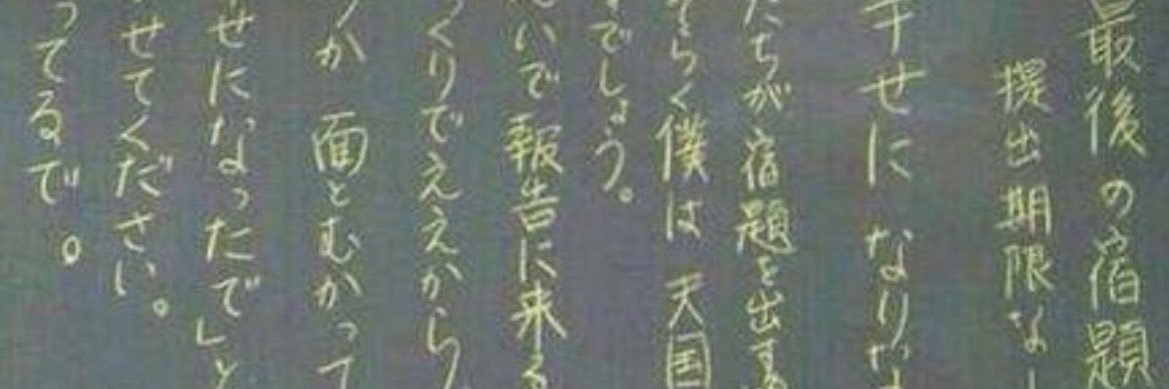 最後の宿題
提出期限な
せになり
たちが宿題を出す
らく僕は天国
でしょう。
いで報告に来る
くりでええから
か 面とむかって
せになったで」と
せてください。
ってるで。